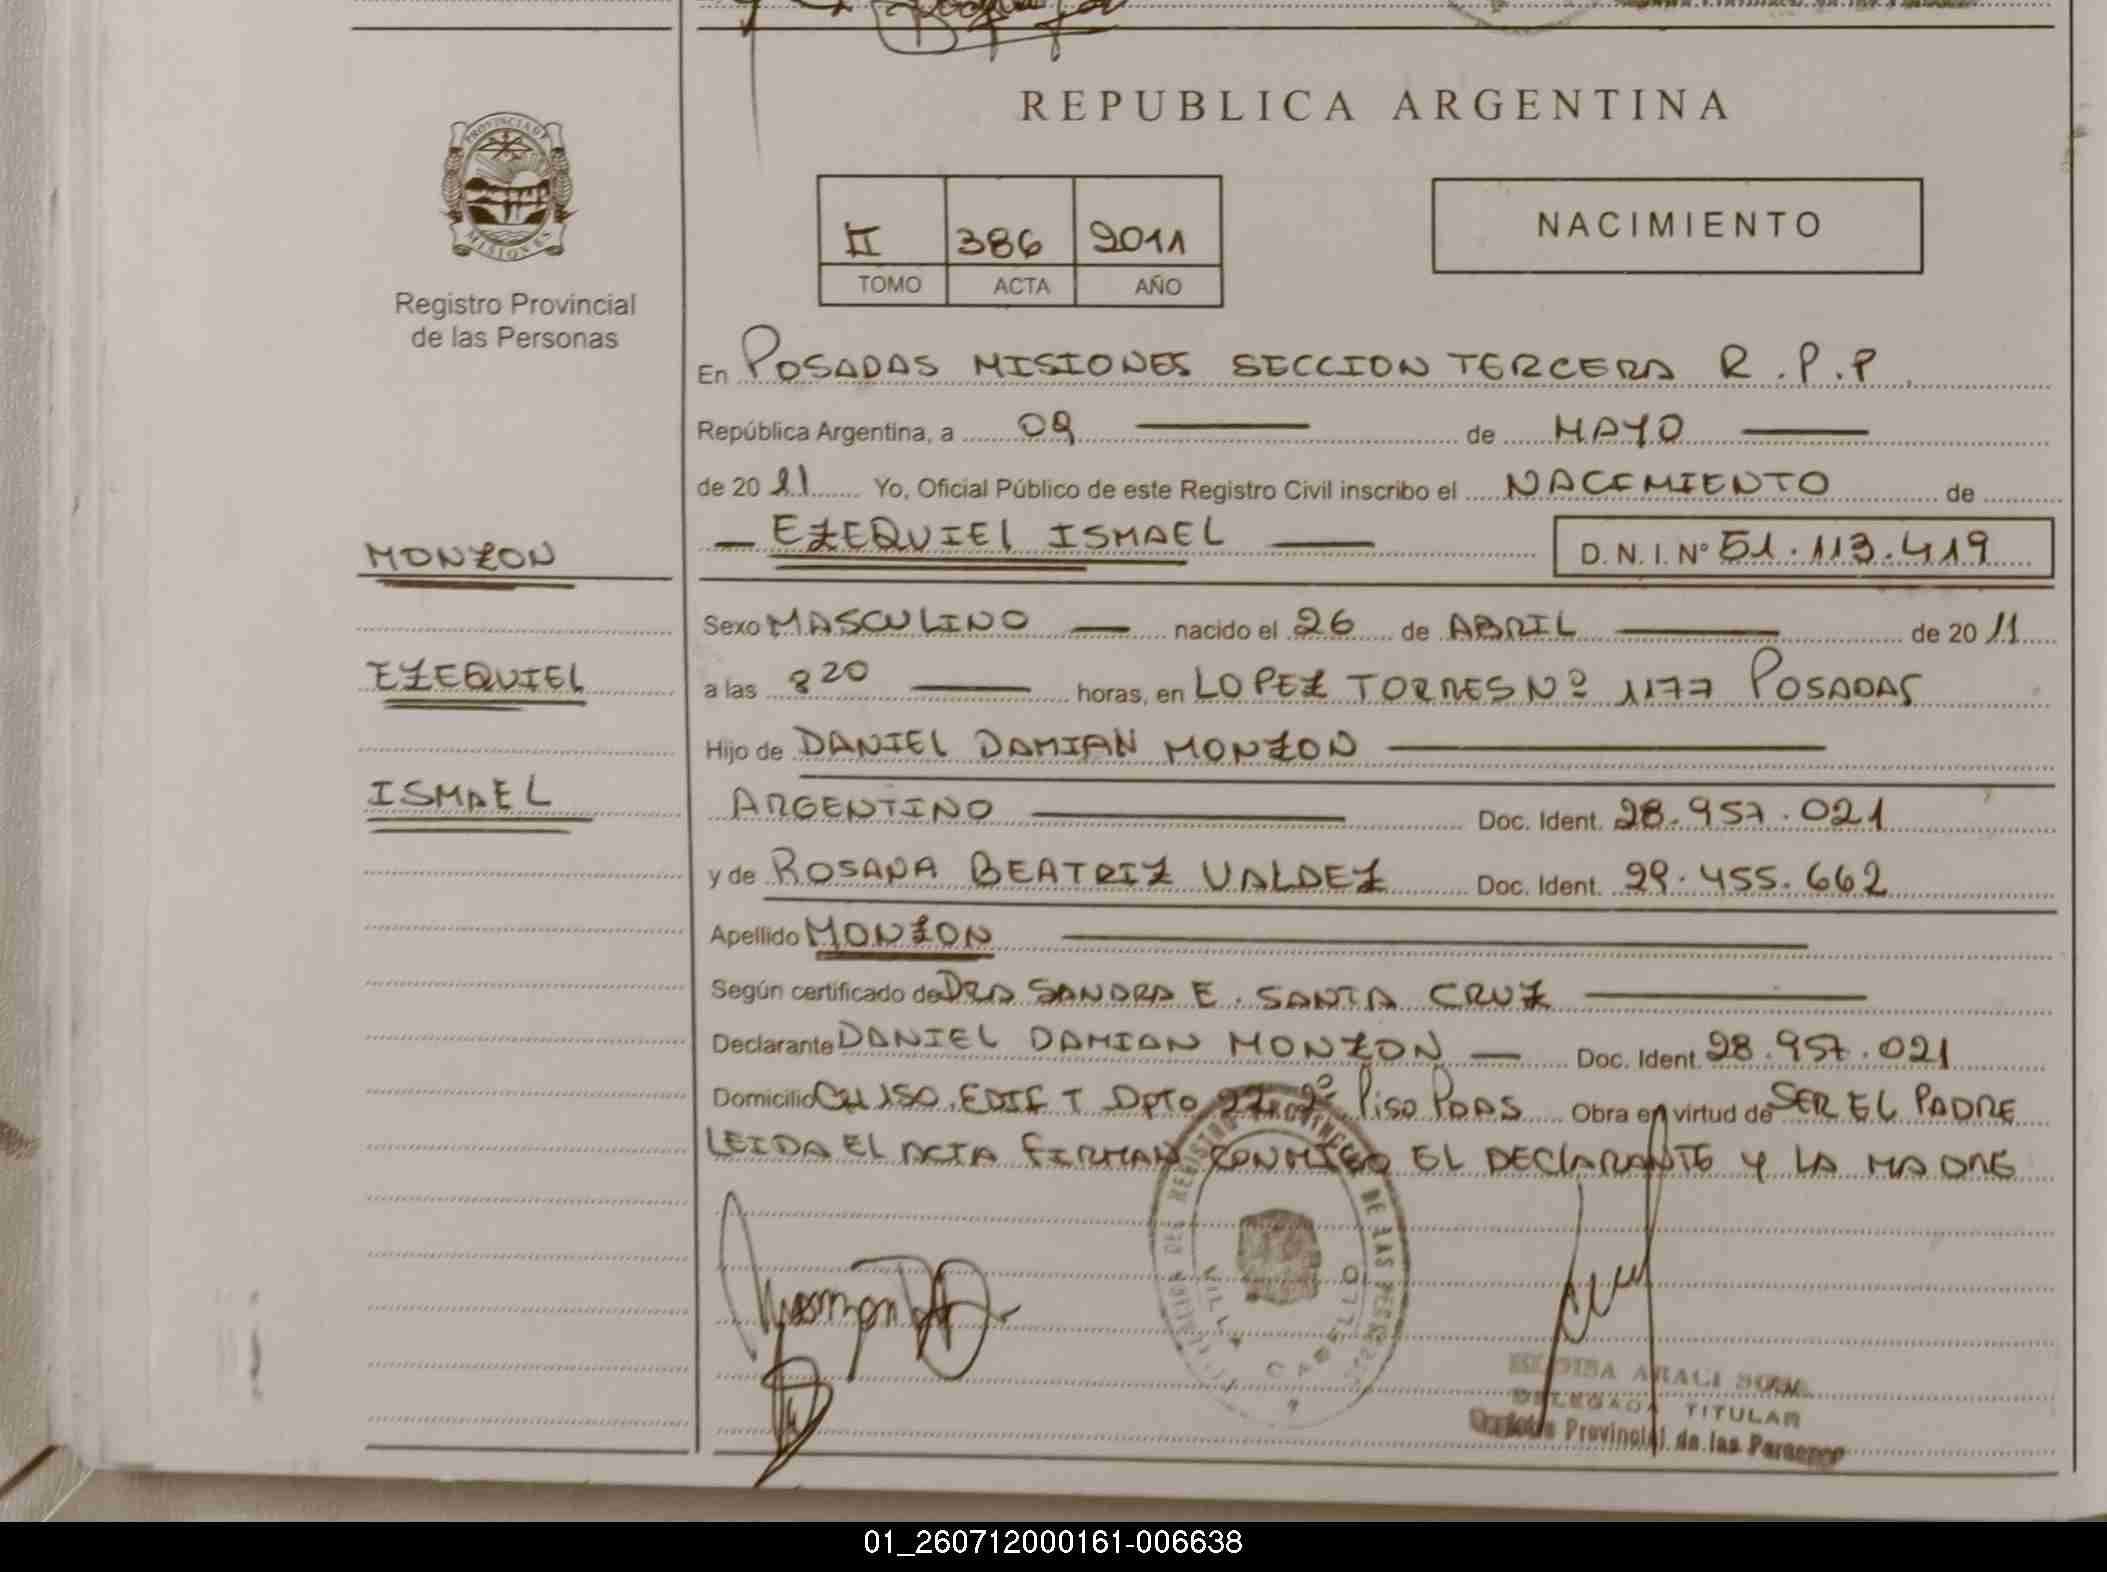 REPUBLICA ARGENTINA
PROVINCIA D
MISIONES
Registro Provincial
de las Personas
II 386 2011
TOMO ACTA AÑO
NACIMIENTO
En POSADAS MISIONES SECCION TERCERA R.P.P
República Argentina, a 09 de MAYO
de 2011 Yo, Oficial Público de este Registro Civil inscribo el NACIMIENTO de
EZEQUIEL ISMAEL D.N.I. Nº 51.113.419
MONZON
EZEQUIEL
ISMAEL
Sexo MASCULINO nacido el 26 de ABRIL de 2011
a las 8 20 horas, en LOPEZ TORRES Nº 1177 POSADAS
Hijo de DANIEL DAMIAN MONZON
ARGENTINO Doc. Ident. 28.957.021
y de ROSANA BEATRIZ VALDEZ Doc. Ident. 29.455.662
Apellido MONZON
Según certificado de DRA SANDRA E. SANTA CRUZ
Declarante DANIEL DAMIAN MONZON Doc. Ident. 28.957.021
Domicilio CH 150. EDIF T Dpto 27 2º Piso Pdas Obra en virtud de SER EL PADRE
LEIDA EL ACTA FIRMAN CONMIGO EL DECLARANTE Y LA MADRE
REGISTRO PROVINCIAL DE LAS
VILLA CABELLO
ARACI
DELEGADA TITULAR
Provincial de las Personas
01_260712000161-006638